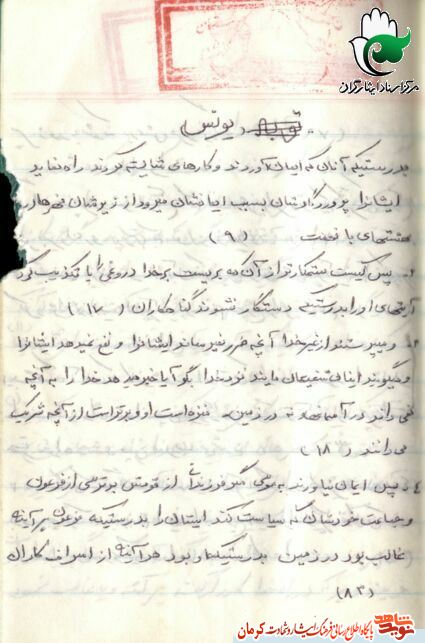 مرکز اسناد ایثارگران
توبه یونس
بدرستیکه آنان که ایمان آوردند و کارهای شایسته کردند راه نماید
ایشانرا پروردگارشان بسبب ایمانشان میرود از زیرشان نهرها در
بهشتهای با نعمت (۹)
پس کیست ستمکارتر از آن که بربست بر خدا دروغی را یا تکذیب کرد
آیتهای او را بدرستیکه رستگار نشوند گناهکاران (۱۷)
و میپرستند از غیر خدا آنچه ضرر نمیرساند ایشانرا و نفع نمیدهد ایشانرا
و میگویند اینان شفیعان مایند نزد خدا بگو آیا خبر میدهید خدا را به آنچه
نمی‌داند در آسمانها و نه در زمین منزه است او و برتر است از آنچه شریک
می‌دانند (۱۸)
۴ـ پس ایمان نیاوردند به موسی مگر فرزندانی از قومش بر ترسی از فرعون
و جماعت خودشان که سیاست کند ایشان را بدرستیکه فرعون هر آینه
غالب بود در زمین بدرستیکه او بود هر آینه از اسراف کاران
(۸۳)
نوید شاهد
پایگاه اطلاع رسانی فرهنگ ایثار و شهادت کرمان